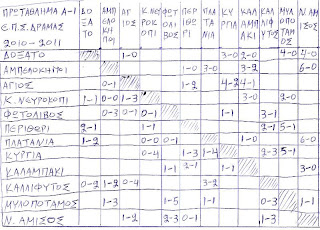 ΠΡΩΤΑΘΛΗΜΑ Α-1
Ε.Π.Σ. ΔΡΑΜΑΣ
2010-2011
ΔΟΞΑΤΟ ΑΜΠΕΛΟΚΗΠΟΙ ΑΓΙΟΣ Κ.ΝΕΥΡΟΚΟΠΙ ΦΩΤΟΛΙΒΟΣ ΠΕΡΙΘΩΡΙ ΠΛΑΤΑΝΙΑ ΚΥΡΓΙΑ ΚΑΛΑΜΠΑΚΙ ΚΑΛΛΙΦΥΤΟΣ ΜΥΛΟΠΟΤΑΜΟΣ Ν. ΑΜΙΣΟΣ
ΔΟΞΑΤΟ 1-0 3-0 2-0 4-0 4-0
ΑΜΠΕΛΟΚΗΠΟΙ 1-0 3-0 3-2 6-0
ΑΓΙΟΣ 0-1 1-2 4-2 4-1
Κ. ΝΕΥΡΟΚΟΠΙ 1-1 0-0 1-3 3-0 2-0
ΦΩΤΟΛΙΒΟΣ 1-3 0-0 1-1 3-1
ΠΕΡΙΘΩΡΙ 2-1 1-1 2-1 5-1
ΠΛΑΤΑΝΙΑ 1-2 0-0 0-1 1-0 6-0
ΚΥΡΓΙΑ 0-4 1-3 1-4 2-3 5-1
ΚΑΛΑΜΠΑΚΙ 1-1 2-1 1-1 3-0
ΚΑΛΛΙΦΥΤΟΣ 0-2 1-2 0-4 3-2
ΜΥΛΟΠΟΤΑΜΟΣ 1-3 1-5 1-1 0-3 1-0
Ν. ΑΜΙΣΟΣ 1-2 2-3 0-1 1-3